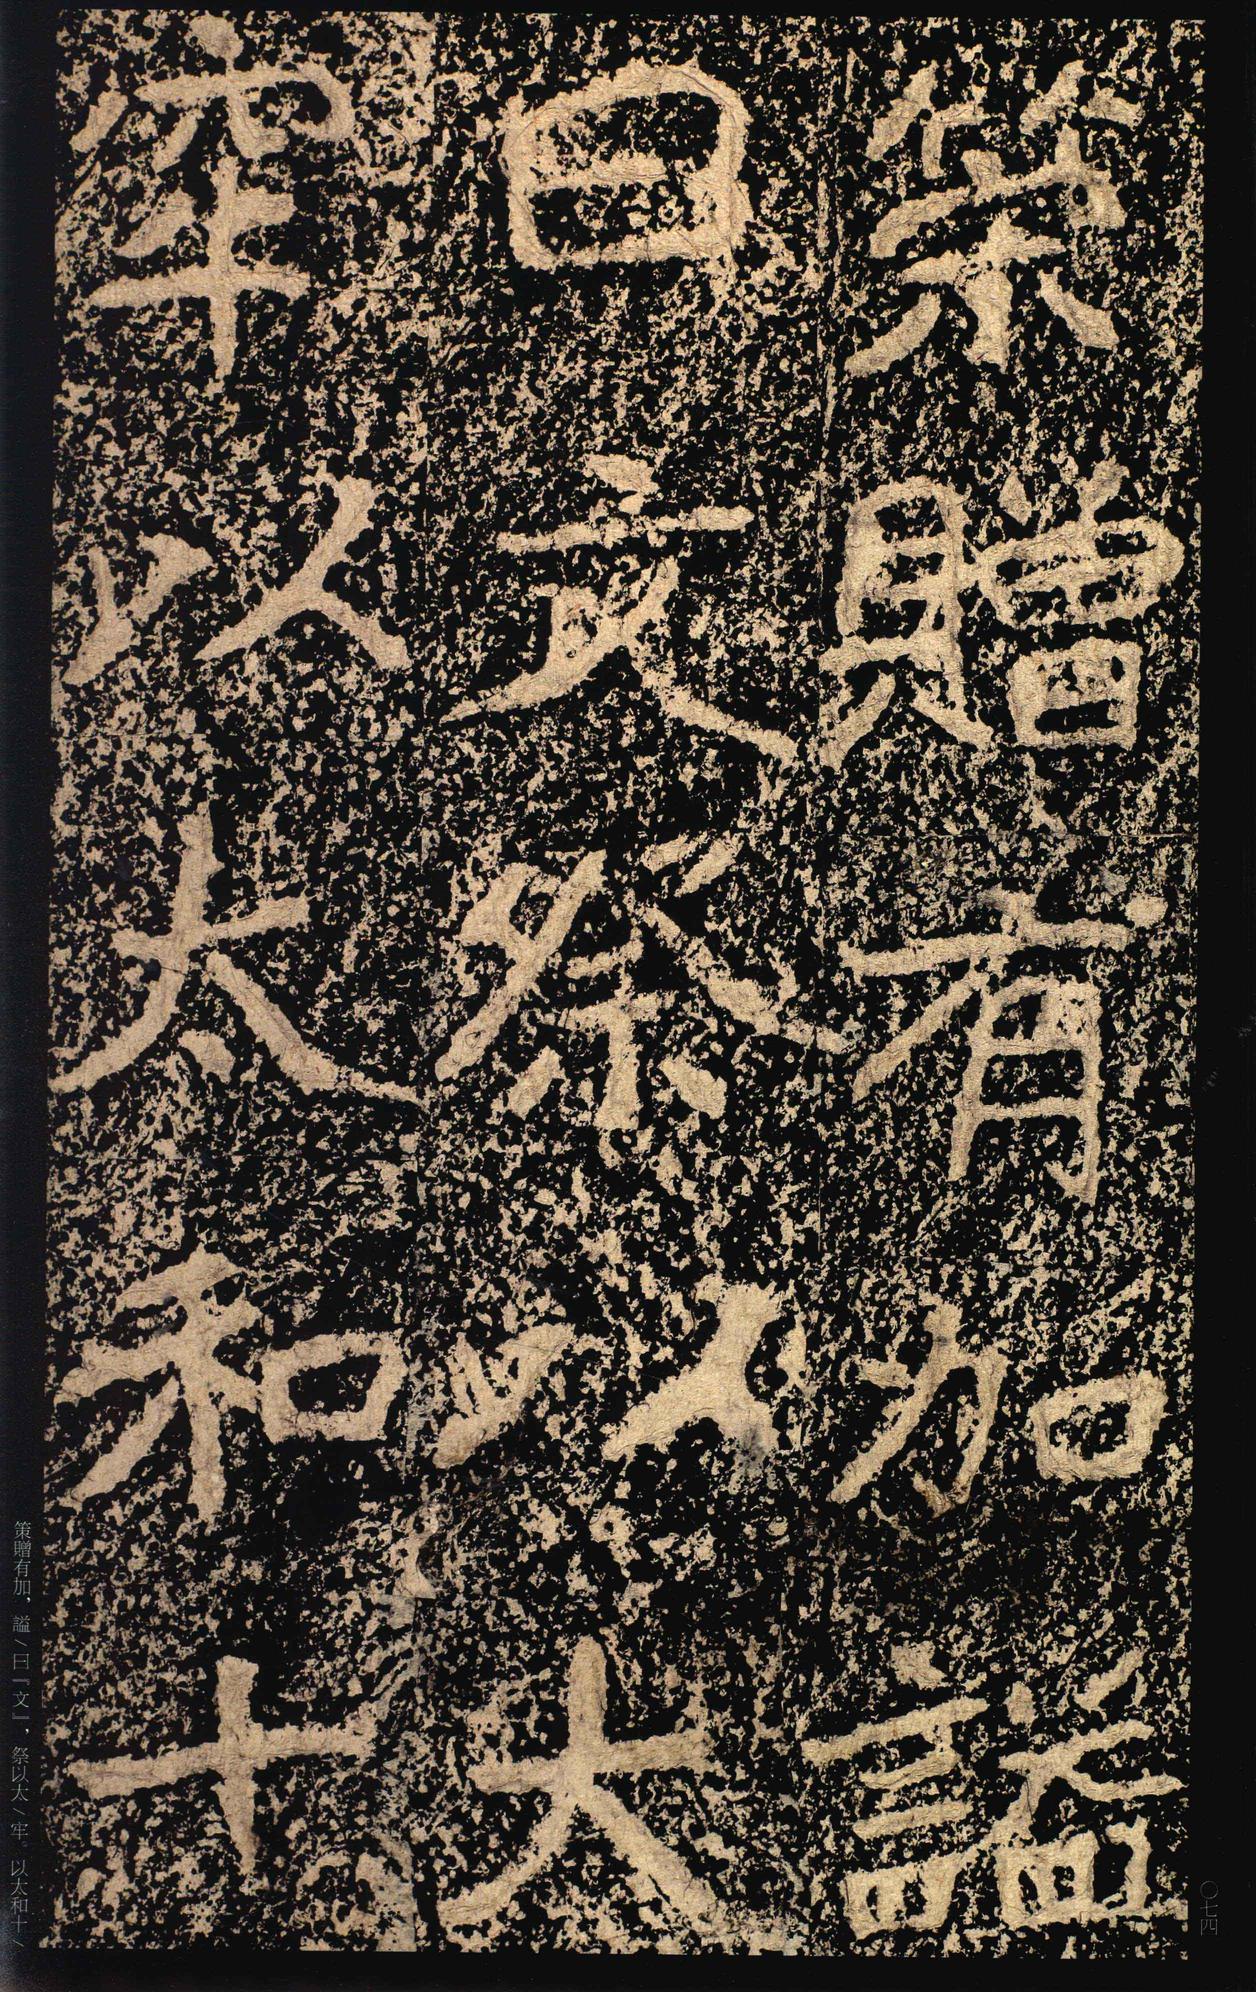 策贈有加謚
曰文祭以太
牢以太和十
策贈有加，謚／曰『文』，祭以太／牢。以太和十／
〇七四